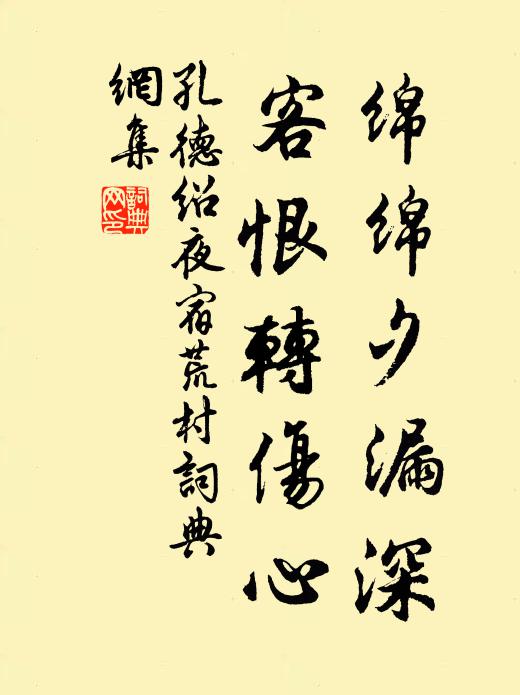 绵绵夕漏深
客恨轉傷心
孔德绍夜宿荒村詞典
網集
詞典
网印